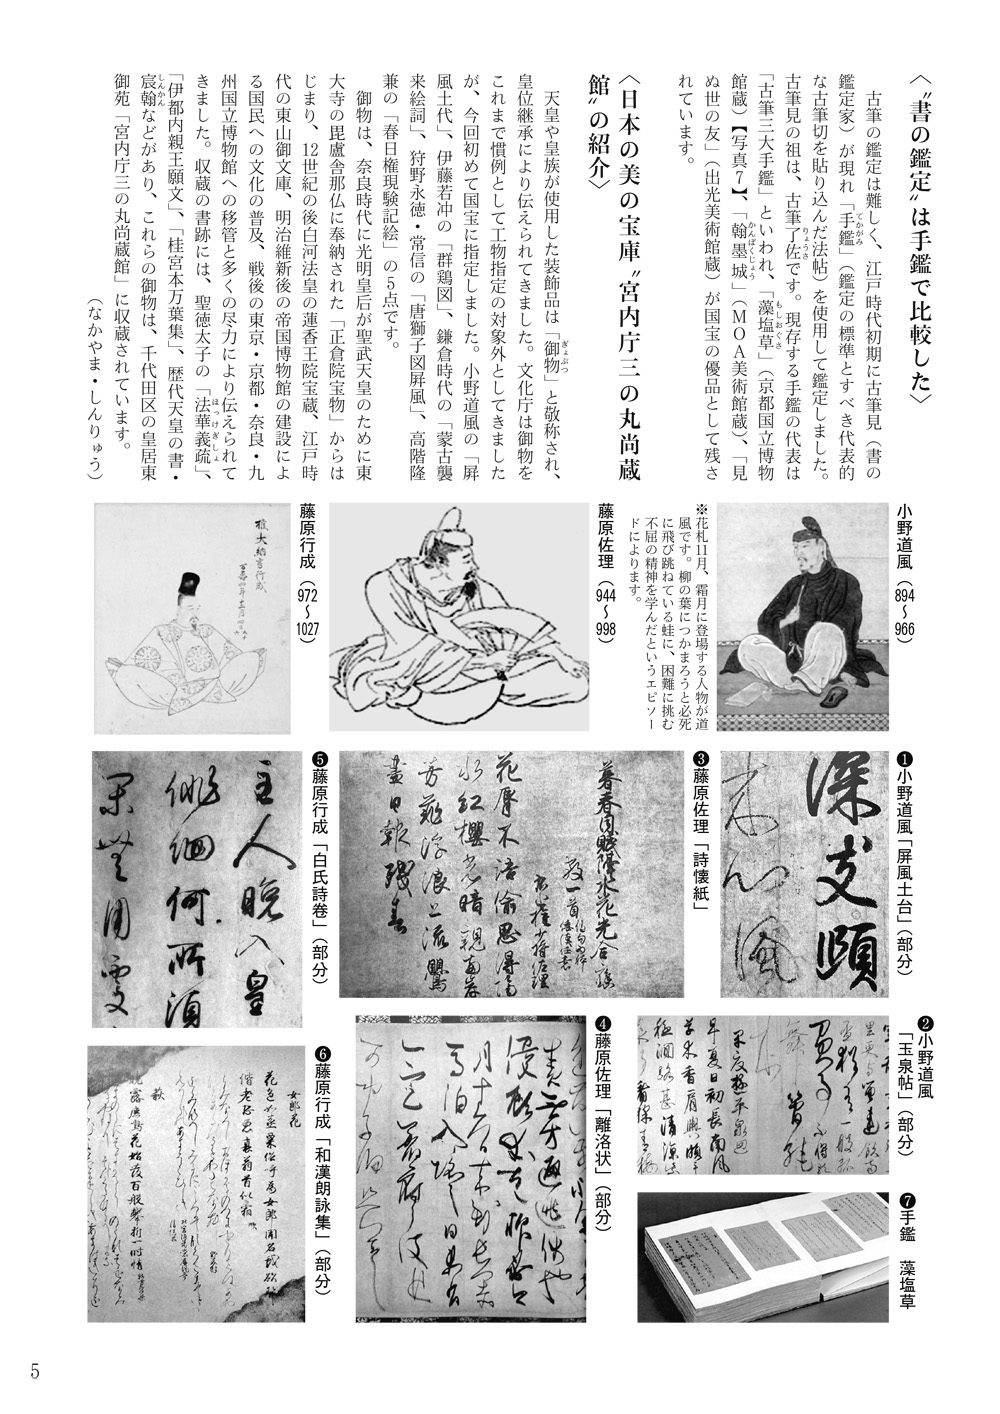 〈〝書の鑑定〟は手鑑で比較した〉
古筆の鑑定は難しく、江戸時代初期に古筆見（書の
鑑定家）が現れ「手鑑」（鑑定の標準とすべき代表的
てかがみ
な古筆切を貼り込んだ法帖）を使用して鑑定しました。
古筆見の祖は、古筆了佐です。現存する手鑑の代表は
りょうさ
「古筆三大手鑑」といわれ、「藻塩草」（京都国立博物
もしおぐさ
館蔵）【写真７】、「翰墨城」（ＭＯＡ美術館蔵）、「見
かんぼくじょう
ぬ世の友」（出光美術館蔵）が国宝の優品として残さ
れています。
〈日本の美の宝庫〝宮内庁三の丸尚蔵
館〟の紹介〉
天皇や皇族が使用した装飾品は「御物」と敬称され、
ぎょぶつ
皇位継承により伝えられてきました。文化庁は御物を
これまで慣例として工物指定の対象外としてきました
が、今回初めて国宝に指定しました。小野道風の「屏
風土代」、伊藤若冲の「群鶏図」、鎌倉時代の「蒙古襲
来絵詞」、狩野永徳・常信の「唐獅子図屏風」、高階隆
兼の「春日権現験記絵」の５点です。
御物は、奈良時代に光明皇后が聖武天皇のために東
大寺の毘盧舎那仏に奉納された「正倉院宝物」からは
じまり、12世紀の後白河法皇の蓮香王院宝蔵、江戸時
代の東山御文庫、明治維新後の帝国博物館の建設によ
る国民への文化の普及、戦後の東京・京都・奈良・九
州国立博物館への移管と多くの尽力により伝えられて
きました。収蔵の書跡には、聖徳太子の「法華義疏」、
ほっけぎしょ
「伊都内親王願文」、「桂宮本万葉集」、歴代天皇の書・
宸翰などがあり、これらの御物は、千代田区の皇居東
しんかん
御苑「宮内庁三の丸尚蔵館」に収蔵されています。
（なかやま・しんりゅう）
小野道風（894～966）
※花札11月、霜月に登場する人物が道
風です。柳の葉につかまろうと必死
に飛び跳ねている蛙に、困難に挑む
不屈の精神を学んだというエピソー
ドによります。
藤原佐理（944～998）
藤原行成（972～1027）
権大納言行成
❶小野道風「屏風土台」（部分）
深支頤
❸藤原佐理「詩懐紙」
暮春同賦隔水花光合應
教一首
花脣不語偸思得
水紅櫻光暗親兩岸
芳菲浮浪上流鶯
盡日報残春
❺藤原行成「白氏詩巻」（部分）
主人晩入皇
俳徊何所須
❷小野道風
「玉泉帖」（部分）
早夏日初長南風
草木香肩輿頗平
❹藤原佐理「離洛状」（部分）
❻藤原行成「和漢朗詠集」（部分）
女郎花
花色如蒸粟俗呼為女郎聞名戯欲
偕老恐悪衰翁首似霜
萩
暁露鹿鳴花始發百般攀折一時情
❼手鑑　藻塩草
5